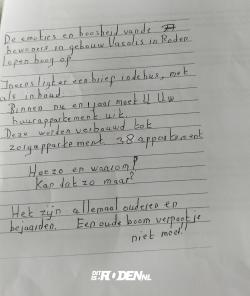 De emoties en boosheid van de
bewoners in gebouw Vasalis in Roden
lopen hoog op
Ineens ligt er een brief in de bus, met
als inhoud
Binnen nu en 1 jaar moet U Uw
huurappartement uit.
Deze worden verbouwd tot
zorgappartement. 38 appartement
Hoezo en waarom?
Kan dat zo maar?
Het zijn allemaal ouderen en
bejaarden. Een oude boom verpoot je
niet meer!
DIT IS RODEN.NL